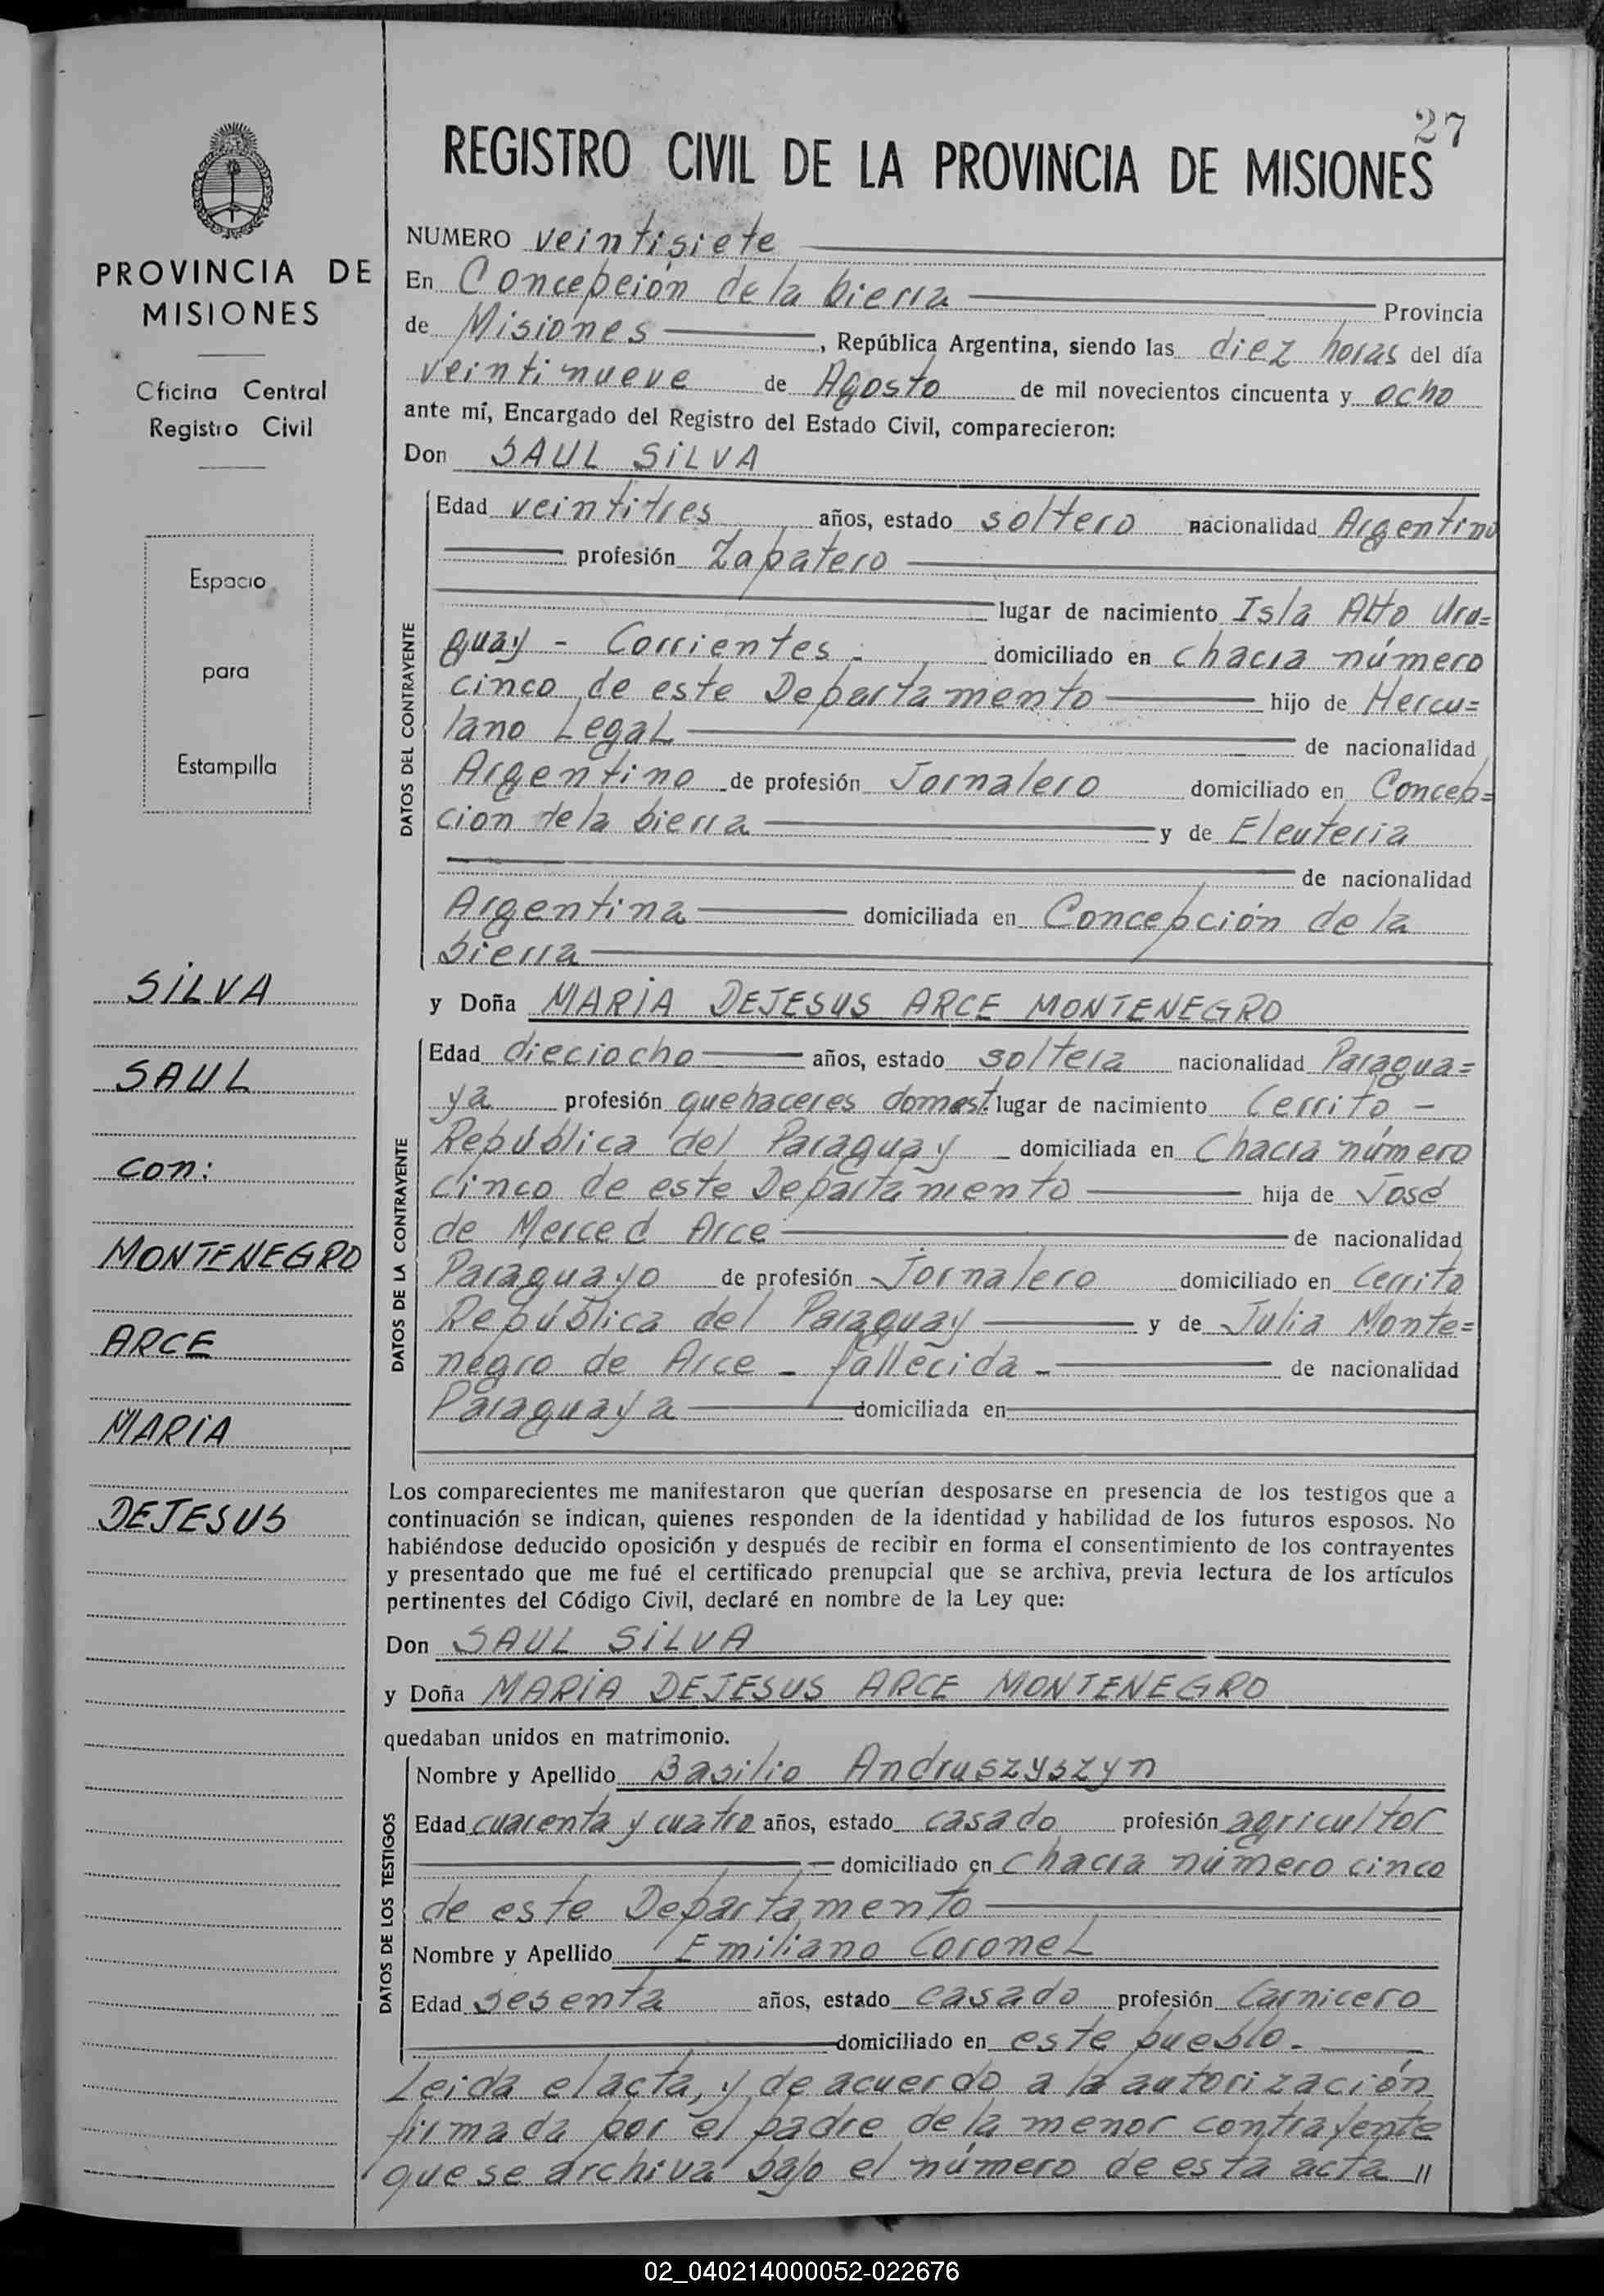 27
REGISTRO CIVIL DE LA PROVINCIA DE MISIONES
PROVINCIA DE
MISIONES
Oficina Central
Registro Civil
Espacio
para
Estampilla
SILVA
SAUL
con:
MONTENEGRO
ARCE
MARIA
DEJESUS
NUMERO veintisiete
En Concepción de la Sierra Provincia
de Misiones, República Argentina, siendo las diez horas del día
veintinueve de Agosto de mil novecientos cincuenta y ocho
ante mí, Encargado del Registro del Estado Civil, comparecieron:
Don SAUL SILVA
DATOS DEL CONTRAYENTE
Edad veintitres años, estado soltero nacionalidad Argentino
profesión Zapatero
lugar de nacimiento Isla Alto Uru=
guay - Corrientes - domiciliado en chacra número
cinco de este Departamento hijo de Hercu=
lano Legal de nacionalidad
Argentino de profesión Jornalero domiciliado en Concep=
cion de la Sierra y de Eleuteria
de nacionalidad
Argentina domiciliada en Concepción de la
Sierra
y Doña MARIA DEJESUS ARCE MONTENEGRO
DATOS DE LA CONTRAYENTE
Edad dieciocho años, estado soltera nacionalidad Paragua=
ya profesión quehaceres domest. lugar de nacimiento Cerrito -
República del Paraguay - domiciliada en Chacra número
cinco de este Departamento hija de José
de Merced Arce de nacionalidad
Paraguayo de profesión Jornalero domiciliado en Cerrito
República del Paraguay y de Julia Monte=
negro de Arce - fallecida - de nacionalidad
Paraguaya domiciliada en
Los comparecientes me manifestaron que querían desposarse en presencia de los testigos que a
continuación se indican, quienes responden de la identidad y habilidad de los futuros esposos. No
habiéndose deducido oposición y después de recibir en forma el consentimiento de los contrayentes
y presentado que me fué el certificado prenupcial que se archiva, previa lectura de los artículos
pertinentes del Código Civil, declaré en nombre de la Ley que:
Don SAUL SILVA
y Doña MARIA DEJESUS ARCE MONTENEGRO
quedaban unidos en matrimonio.
DATOS DE LOS TESTIGOS
Nombre y Apellido Basilio Andruszyszyn
Edad cuarenta y cuatro años, estado casado profesión agricultor
domiciliado en chacra número cinco
de este Departamento
Nombre y Apellido Emiliano Coronel
Edad sesenta años, estado casado profesión Carnicero
domiciliado en este pueblo.
Leida el acta, y de acuerdo a la autorización
firmada por el padre de la menor contrayente
que se archiva bajo el número de esta acta //
02_040214000052-022676